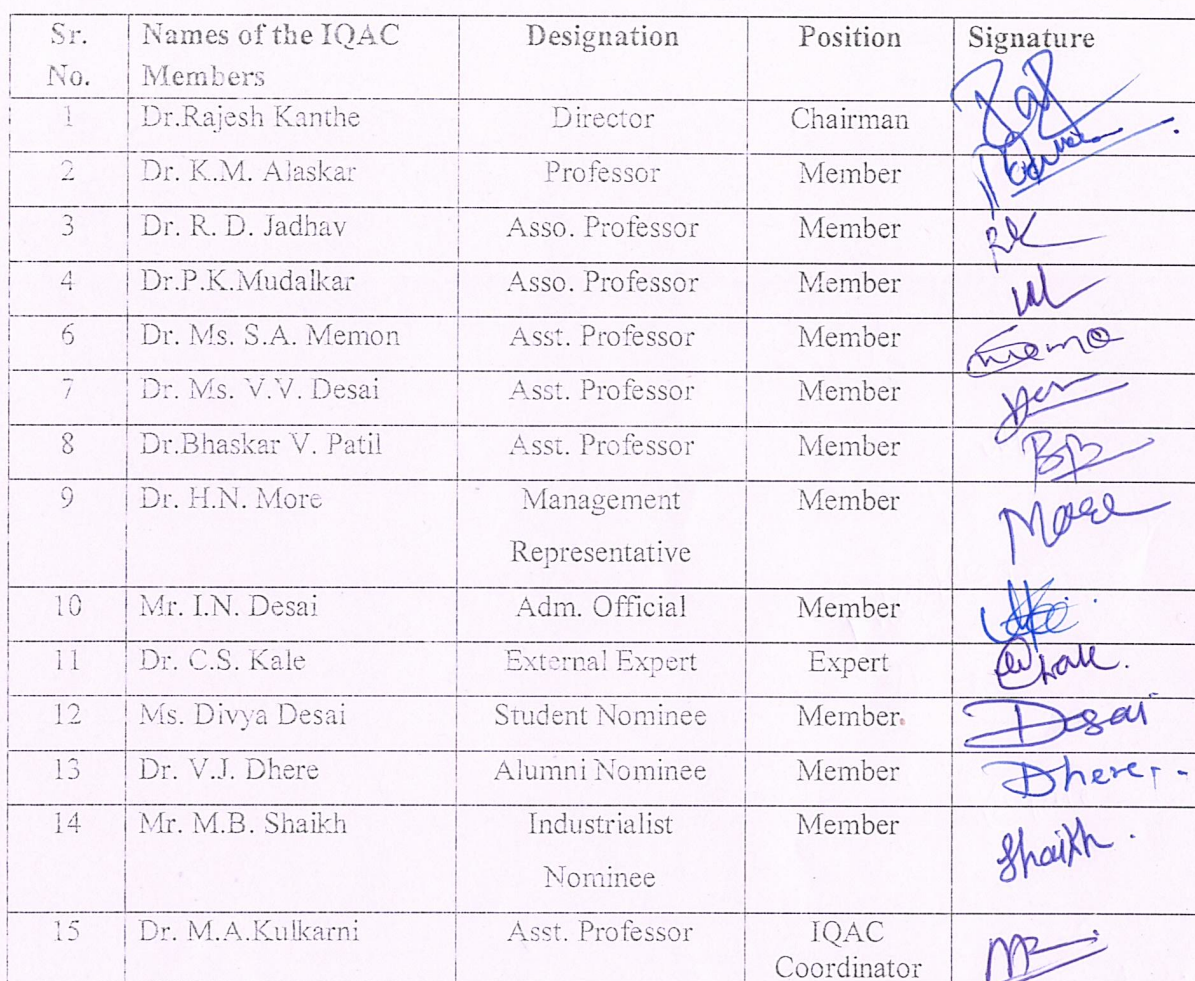 Sr. Names of the IQAC Designation Position Signature
No. Members
1 Dr.Rajesh Kanthe Director Chairman
2 Dr. K.M. Alaskar Professor Member
3 Dr. R. D. Jadhav Asso. Professor Member
4 Dr.P.K.Mudalkar Asso. Professor Member
6 Dr. Ms. S.A. Memon Asst. Professor Member
7 Dr. Ms. V.V. Desai Asst. Professor Member
8 Dr.Bhaskar V. Patil Asst. Professor Member
9 Dr. H.N. More Management Member More
Representative
10 Mr. I.N. Desai Adm. Official Member
11 Dr. C.S. Kale External Expert Expert
12 Ms. Divya Desai Student Nominee Member. Desai
13 Dr. V.J. Dhere Alumni Nominee Member Dhere
14 Mr. M.B. Shaikh Industrialist Member Shaikh.
Nominee
15 Dr. M.A.Kulkarni Asst. Professor IQAC
Coordinator